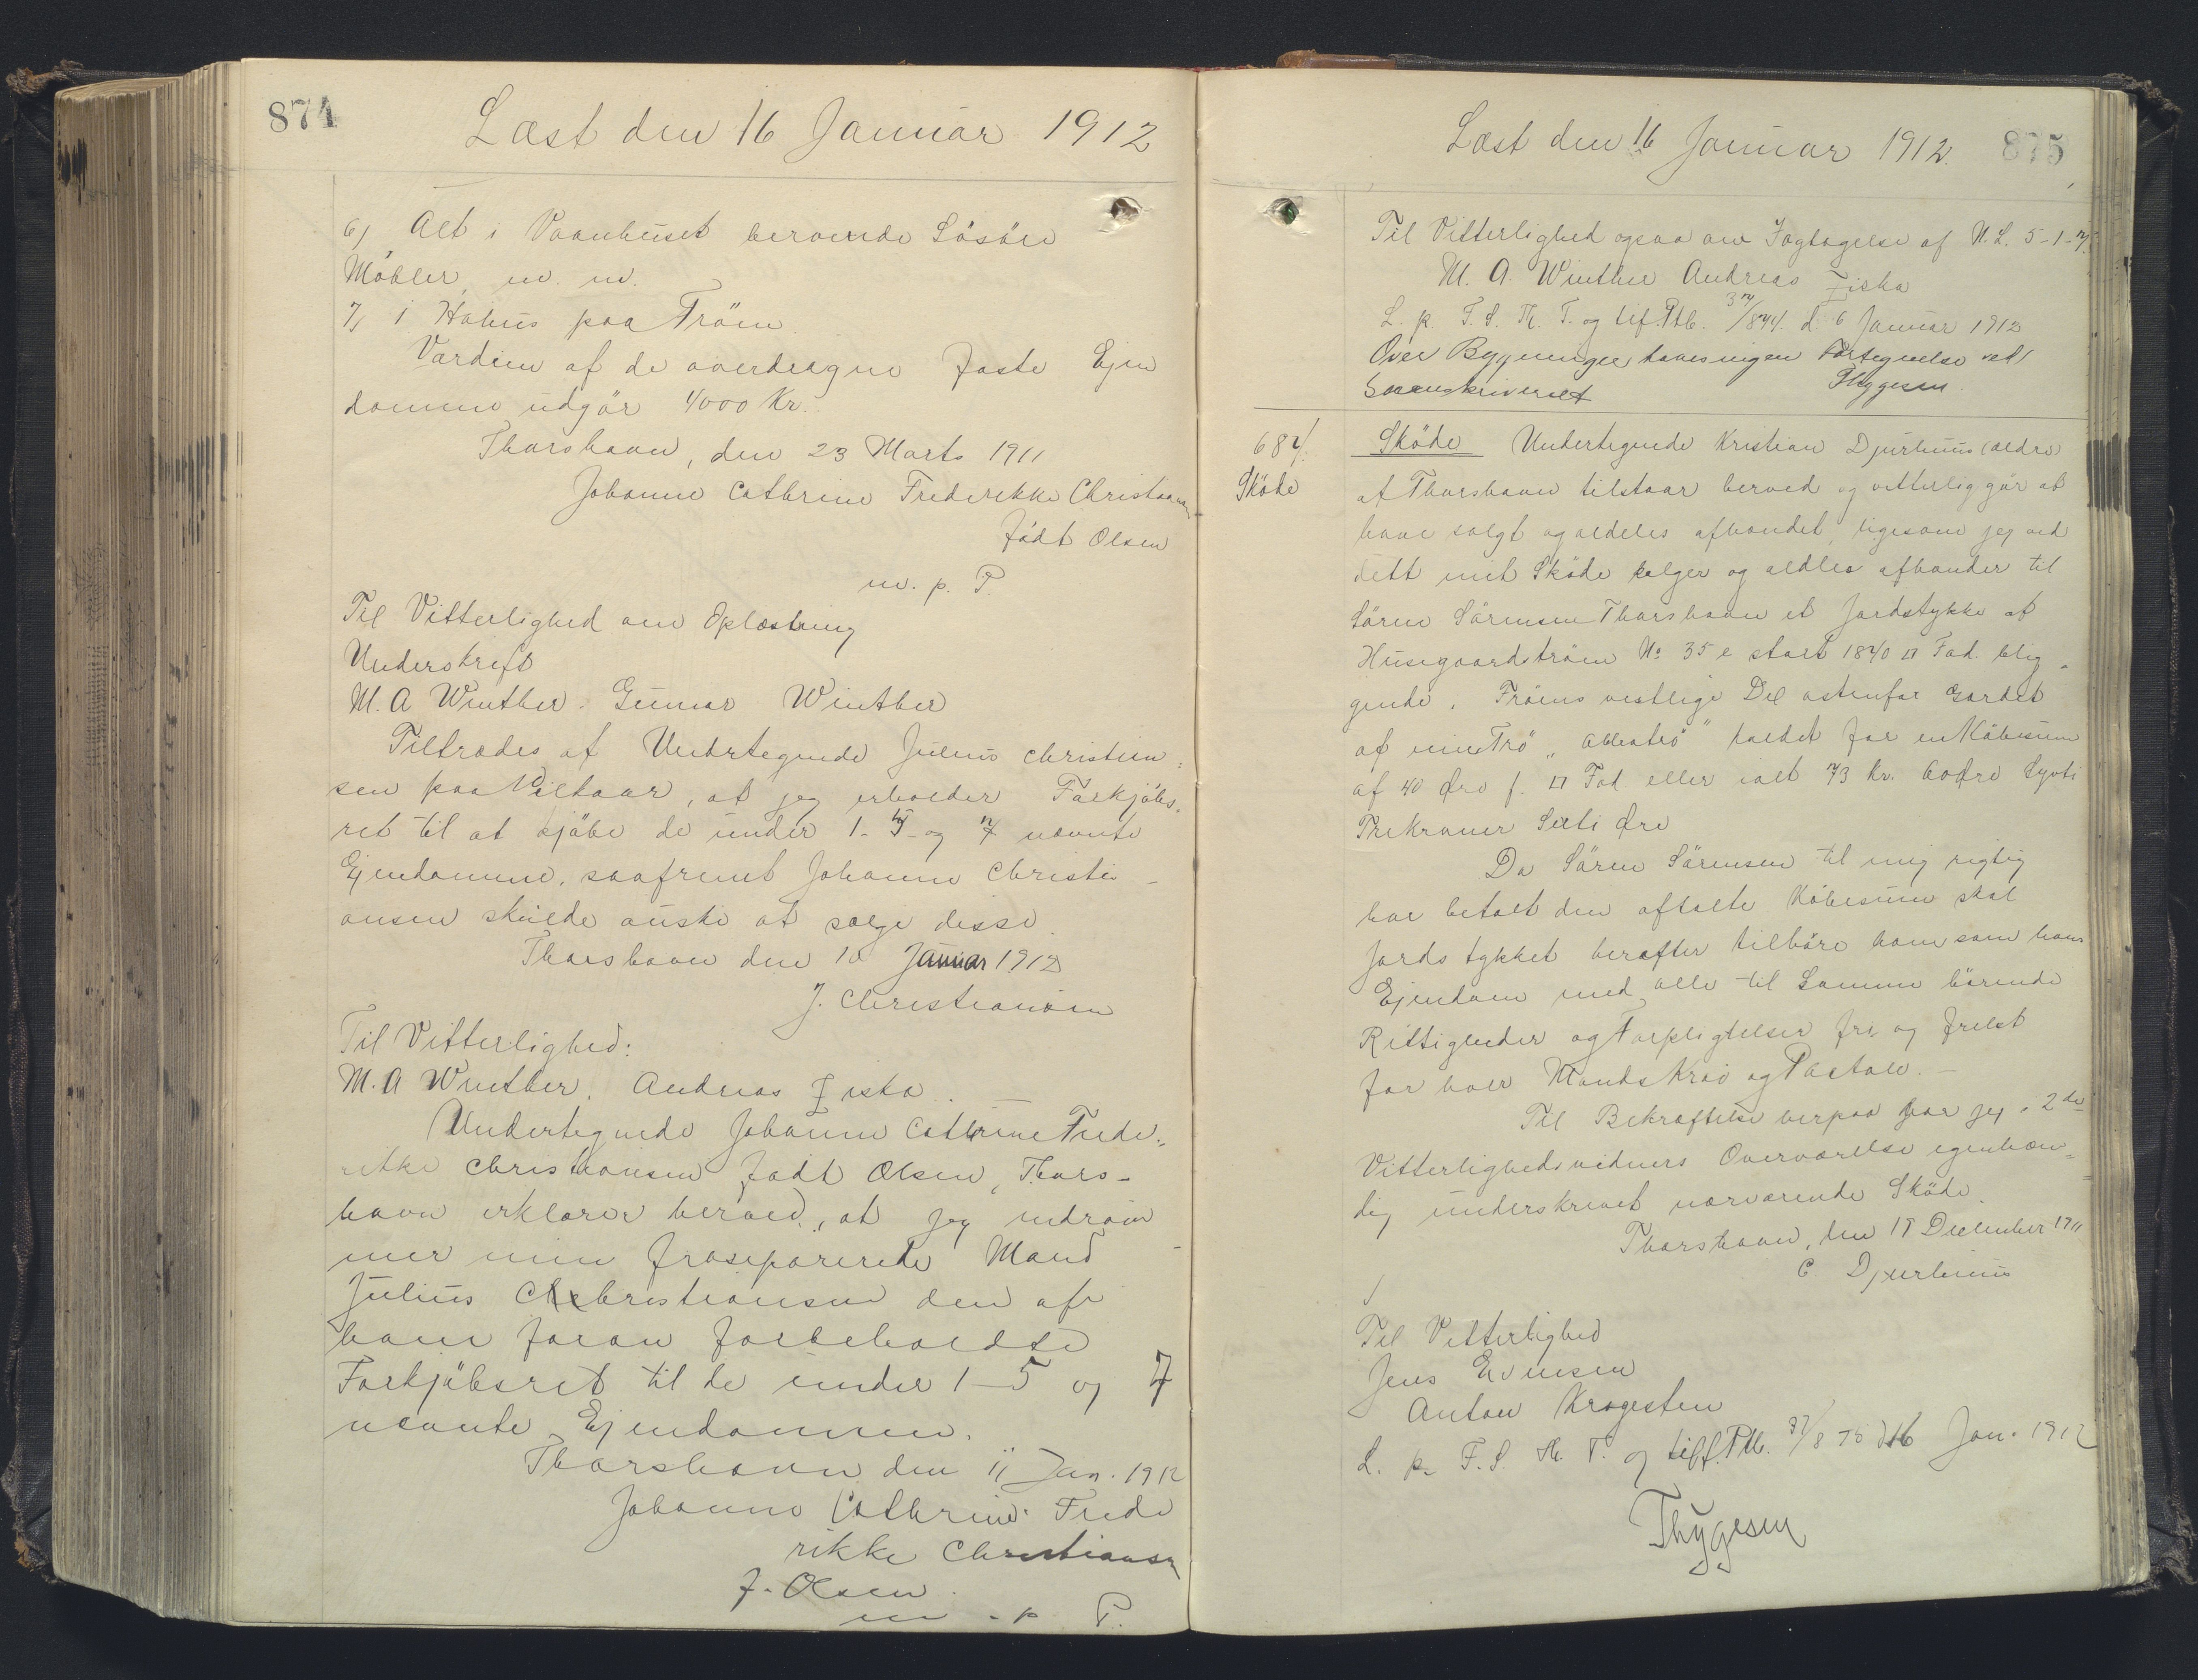 874
Læst den 16 Januar 1912
6) Alt i Vaanhuset beroende Lösöre
Möbler, m. m.
7) 1 Høhus paa Tröm
Værdien af de overdragne faste Ejen
domme udgör 4000 Kr.
Thorshavn, den 23 Marts 1911
Johanne Cathrine Frederikke Christiansen
födt Olsen
m. p. P.
Til Vitterlighed om Oplæsning
Underskrift
M. A Winther. Gunnar Winther
Tiltrædes af Undertegnede Julius Christian-
sen paa Vilkaar, at jeg erholder Forkjöbs-
ret til at kjöbe de under 1-5 og 7 nævnte
Ejendomme, saafremt Johanne Christi-
ansen skulde önske at sælge disse.
Thorshavn den 10 Januar 1912
J. Christiansen
Til Vitterlighed:
M. A Winther. Andreas Ziska.
Undertegnede Johanne Cathrine Frede-
rikke Christiansen födt Olsen, Thors-
havn erklærer herved, at jeg indröm
mer min fraseparerede Mand
Julius Christiansen den af
ham foran forbeholdte
Forkjöbsret til de under 1-5 og 7
nævnte Ejendomme.
Thorshavn den 11 Jan. 1912
Johanne Cathrine Frede
rikke Christiansen
f. Olsen
m. p. P.
Læst den 16 Januar 1912.
875
Til Vitterlighed ogsaa om Iagtagelse af N. L. 5-1-7.
M. A. Winther Andreas Ziska
L. p. F. S. Th. T. og tilf. Ptb. 37/874. d. 16 Januar 1912
Over Bygninger haves ingen Fortegnelse ved
Sorenskriveriet Thygesen.
684.
Sköde
Sköde Undertegnede Kristian Djurhuus (ældre)
af Thorshavn tilstaar herved og vitterliggör at
have solgt og aldeles afhændet, ligesom jeg ved
dette mit Sköde sælger og aldles afhænder til
Sören Sörensen Thorshavn et Jordstykke af
Husegaardströen No 35 e stort 1840 □ Fod. belig-
gende i Tröens vestlige Del østenfor Gærdet
af min Trö kaldet for en Köbesum
af 40 Øre p. □ Fod eller ialt 73 Kr. 60 Øre Syvti
Tre Kroner Seксti Øre
Da Sören Sörensen til mig rigtig
har betalt den aftalte Köbesum skal
Jordstykket herefter tilhöre ham som hans
Ejendom med alle til Samme hörende
Rettigheder og Forpligtelser fri og frelst
for hver Mands Krav og Paatale.-
Til Bekræftelse herpaa har jeg i 2de
Vitterlighedsvidners Overværelse egenhæn-
dig underskrevet nærværende Sköde.
Thorshavn, den 19 December 1911
C Djurhuus
Til Vitterlighed
Jens Evensen
Anton Krogesten
L. p. F. S. Th. T. og tilf. Ptb. 37/875 d 16 Jan. 1912
Thygesen